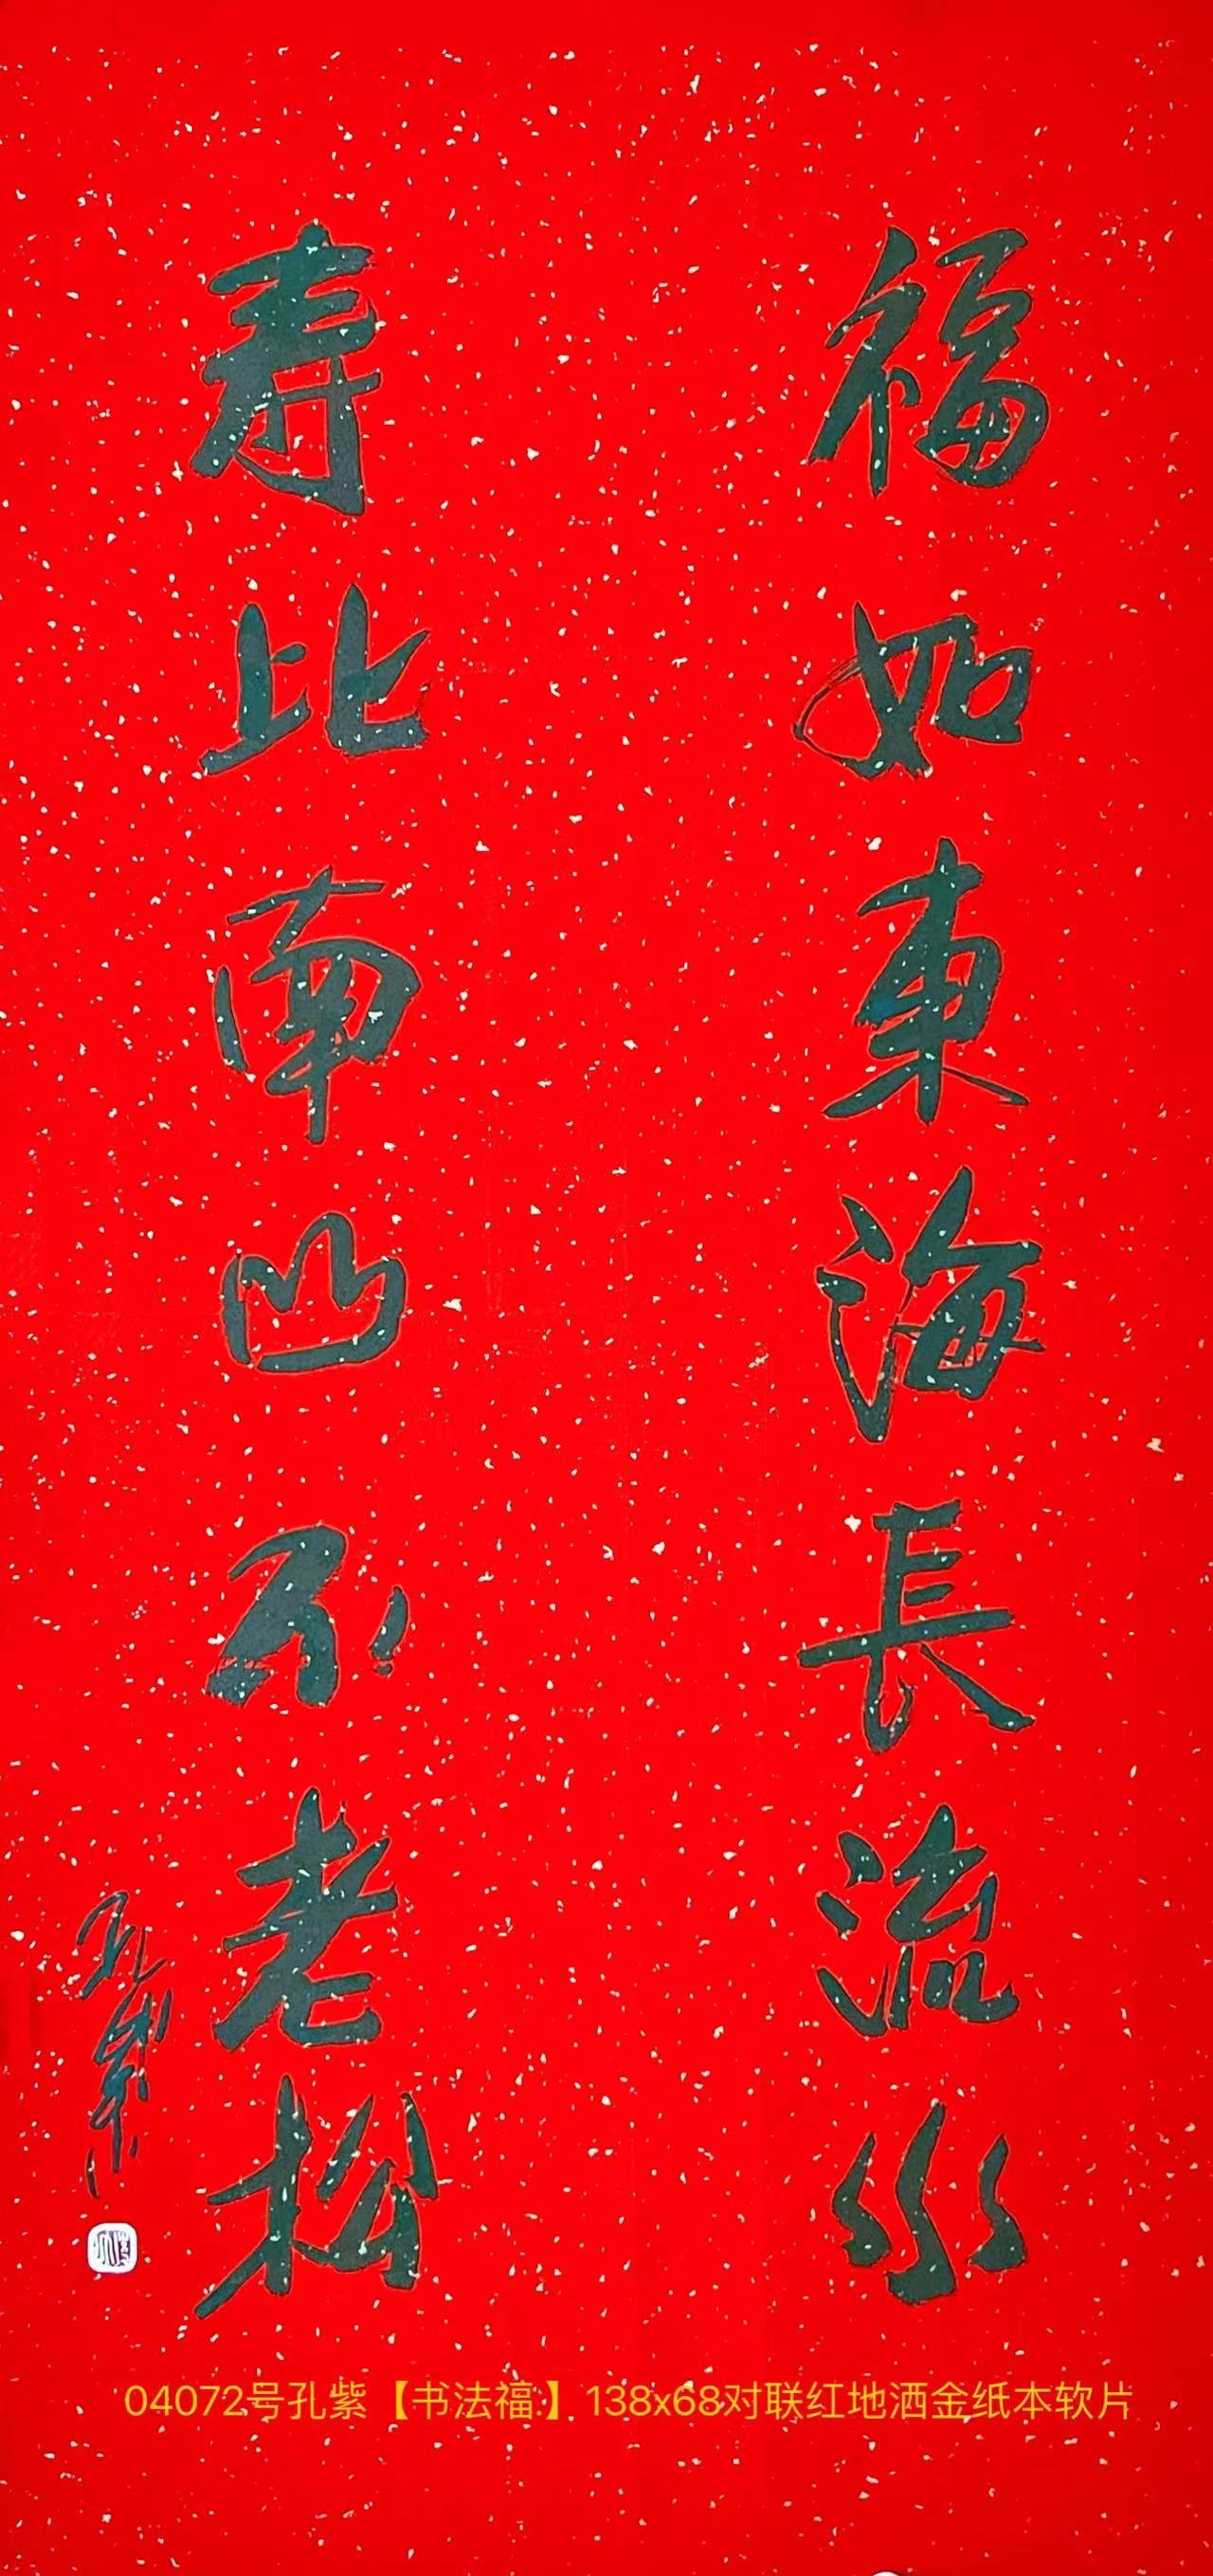 福如東海長流水
寿比南山不老松
孔紫
04072号孔紫【书法福:】138x68对联红地洒金纸本软片